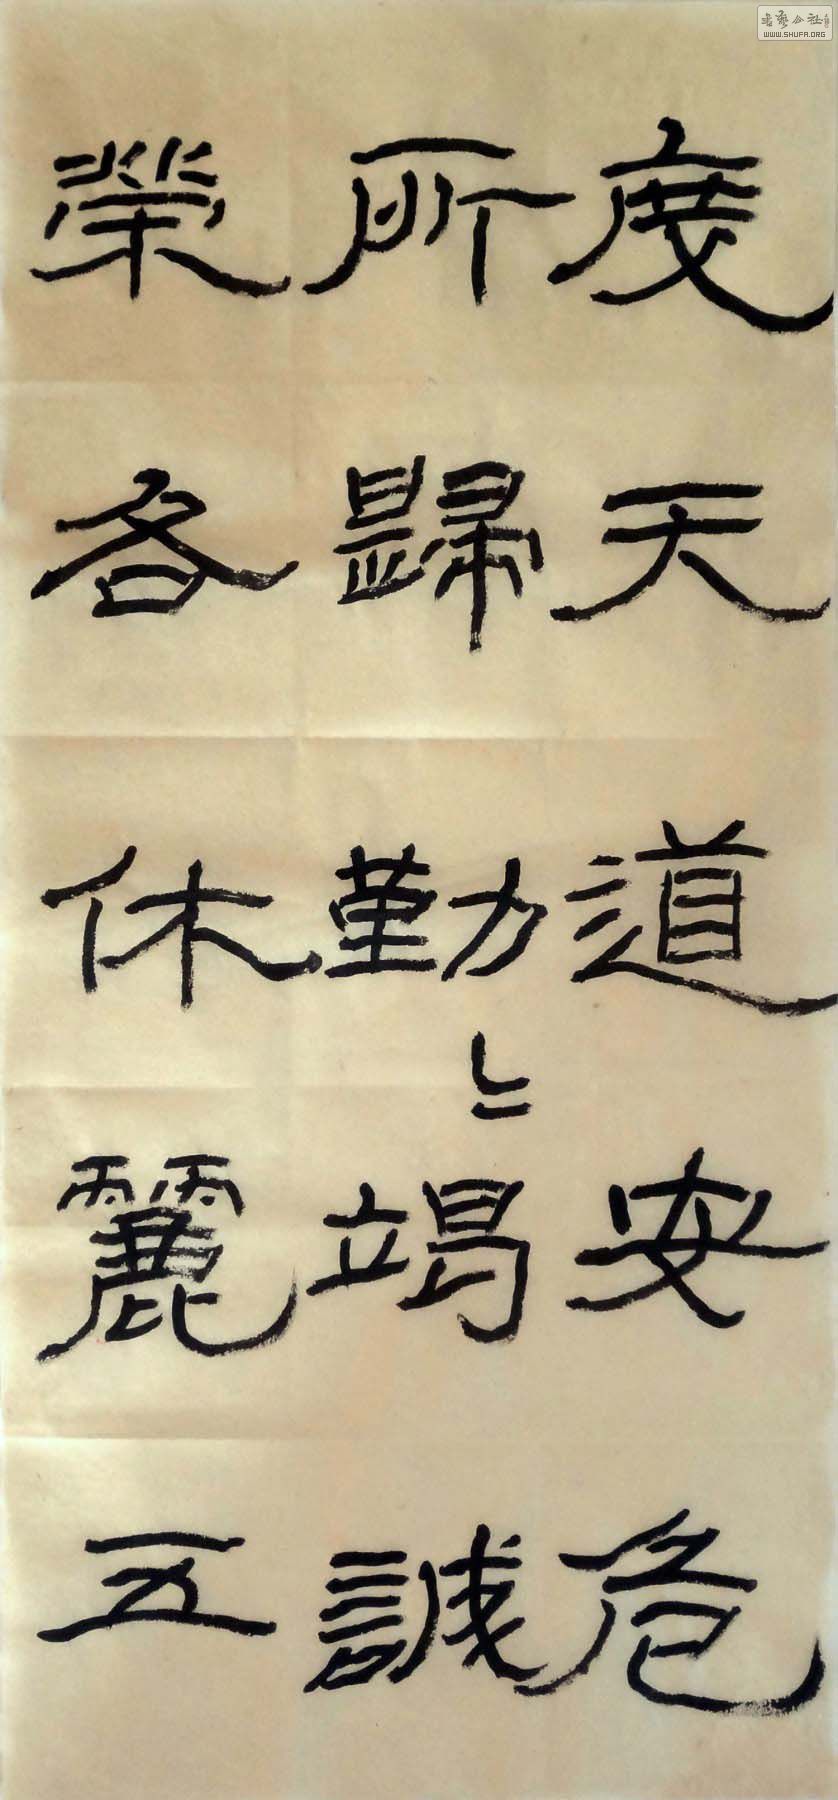 度天道安危
所歸勤〻竭誠
榮名休麗五
書藝公社
WWW.SHUFA.ORG